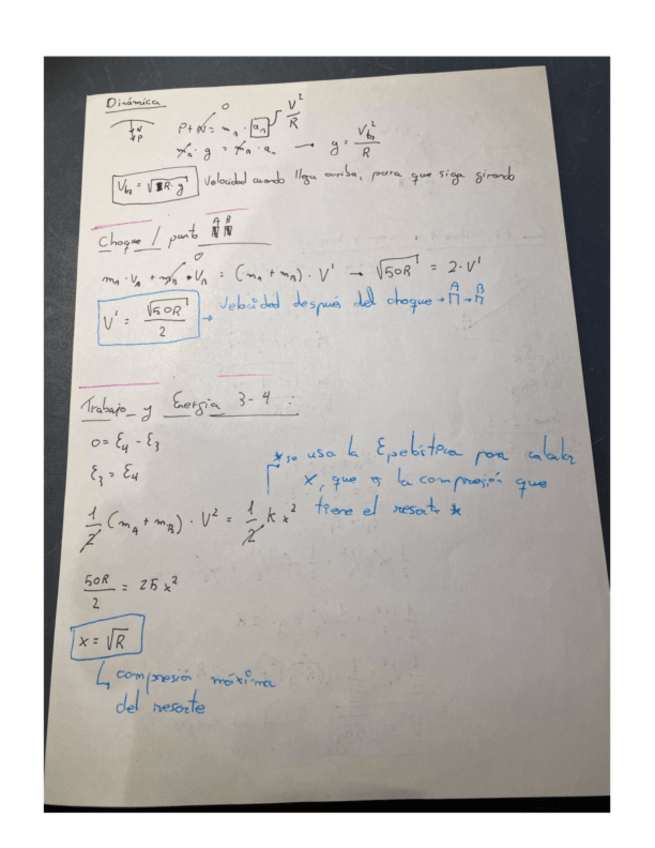 Dinámica
N
P
P + N = m_A · a_n → V²/R
0
m_A · g = m_A · a_n → g = V_B2²/R
V_B2 = √R·g Velocidad cuando llega arriba, para que siga girando
Choque / punto A B
0
m_A · V_A + m_B · V_B = (m_A + m_B) · V' → √50R = 2·V'
V' = √50R / 2 → Velocidad después del choque → A → B
Trabajo y Energía 3-4 :
0 = E₄ - E₃
E₃ = E₄
*se usa la Epelástica para calcular
x, que es la compresión que
tiene el resorte *
1/2 (m_A + m_B) · V² = 1/2 K x²
50R/2 = 25 x²
x = √R
↳ compresión máxima
del resorte